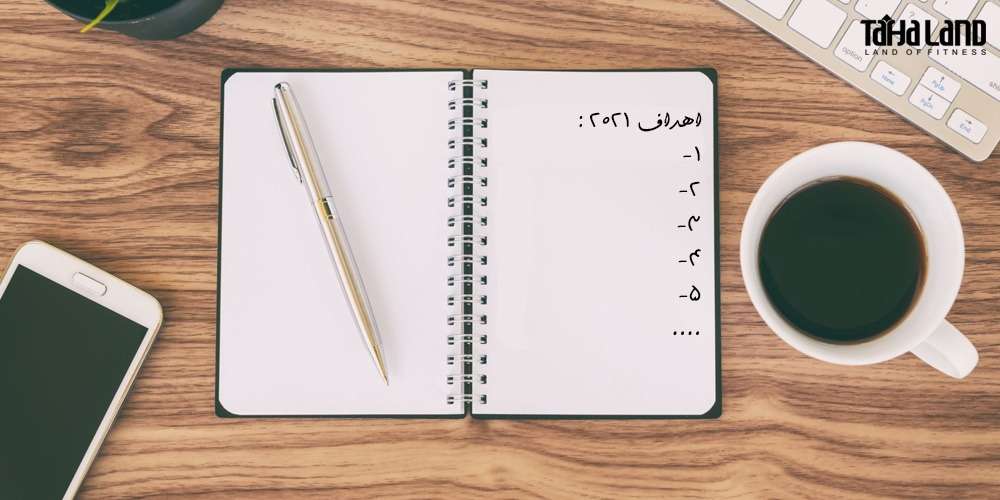 TAHA LAND
LAND OF FITNESS
اهداف ۲۰۲۱ :
۱-
۲-
۳-
۴-
۵-
....
option
Home
PgUp
PgDn
End